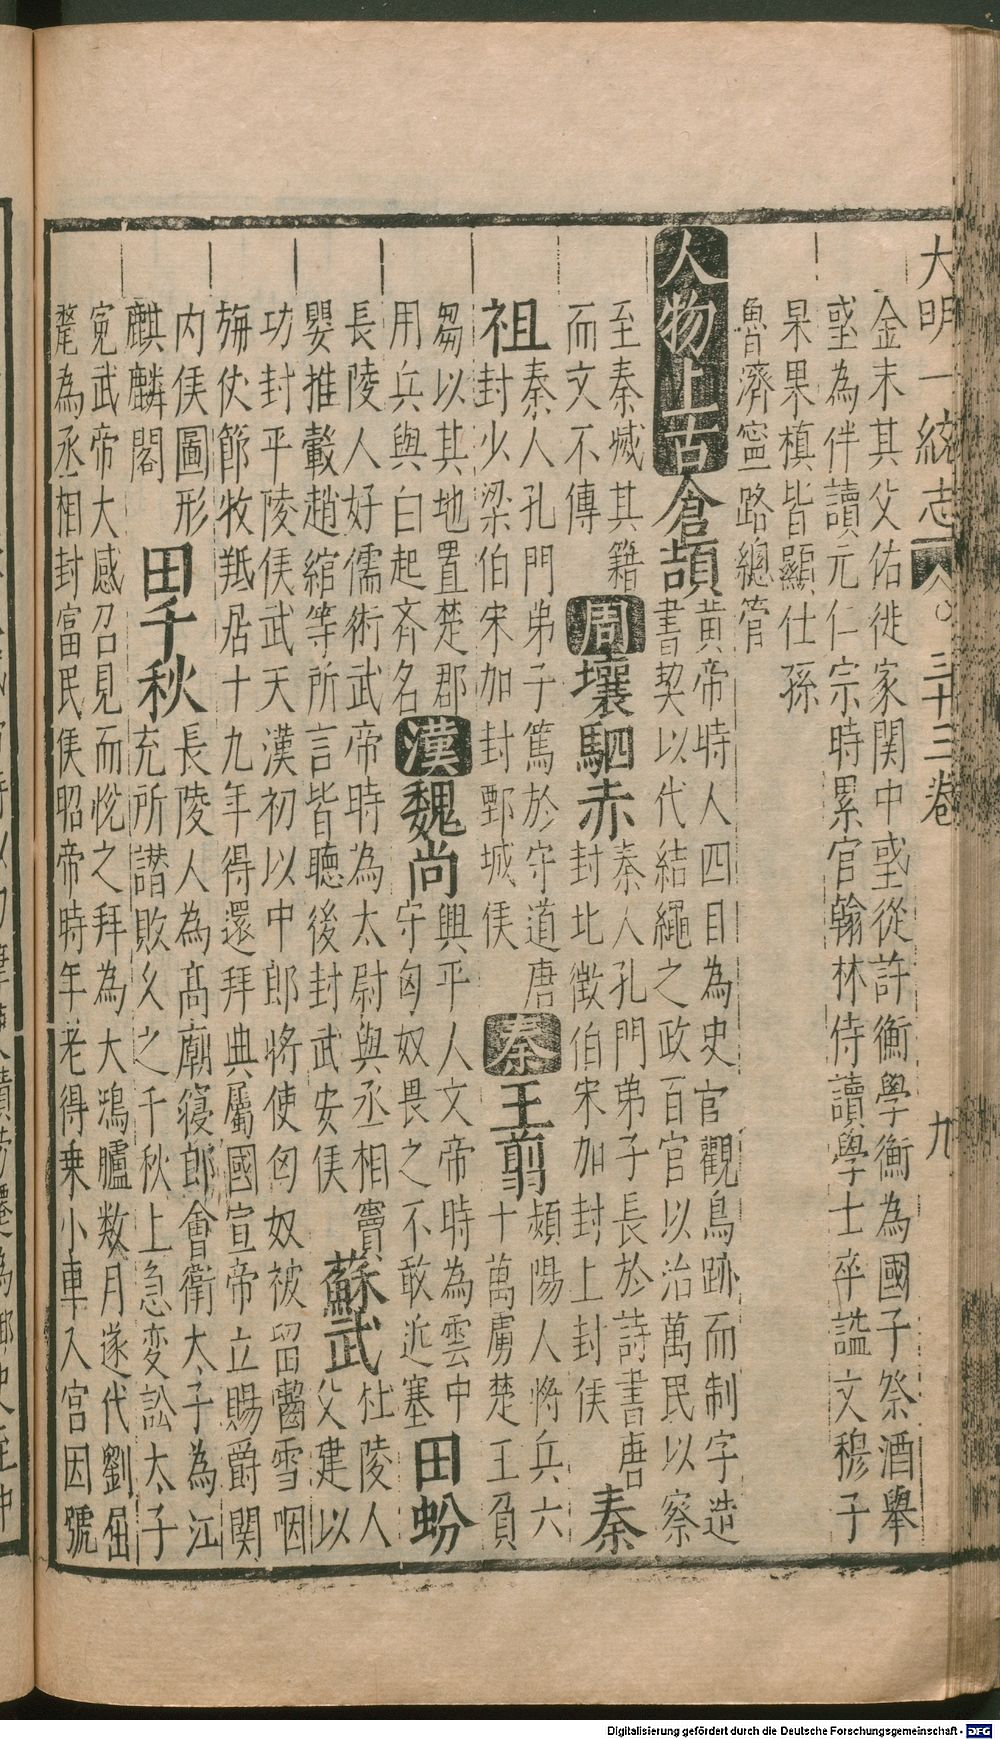 大明一統志 三十三卷 九
金末其父佑徙家関中或從許衡學衡為國子祭酒舉
或為伴讀元仁宗時累官翰林侍讀學士卒謚文穆子
杲果楨皆顯仕孫
魯濟寧路總管
人物上古倉頡
黃帝時人四目為史官觀鳥跡而制字造
書契以代結繩之政百官以治萬民以察
至秦滅其籍
而文不傳
周壤駟赤
秦人孔門弟子長於詩書唐
封北徵伯宋加封上封侯
秦
祖
秦人孔門弟子篤於守道唐
封少梁伯宋加封鄄城侯
秦王翦
頻陽人將兵六
十萬虜楚王負
芻以其地置楚郡
用兵與白起齊名
漢魏尚
興平人文帝時為雲中
守匈奴畏之不敢近塞
田蚡
長陵人好儒術武帝時為太尉與丞相竇
嬰推轂趙綰等所言皆聽後封武安侯
蘇武
杜陵人
父建以
功封平陵侯武天漢初以中郎將使匈奴被留齧雪咽
旃仗節牧羝居十九年得還拜典屬國宣帝立賜爵関
内侯圖形
麒麟閣
田千秋
長陵人為髙廟寝郎會衞太子為江
充所譖敗乆之千秋上急变訟太子
寃武帝大感召見而悅之拜為大鴻臚数月遂代劉屈
氂為丞相封富民侯昭帝時年老得乗小車入宫因號
Digitalisierung gefördert durch die Deutsche Forschungsgemeinschaft - DFG